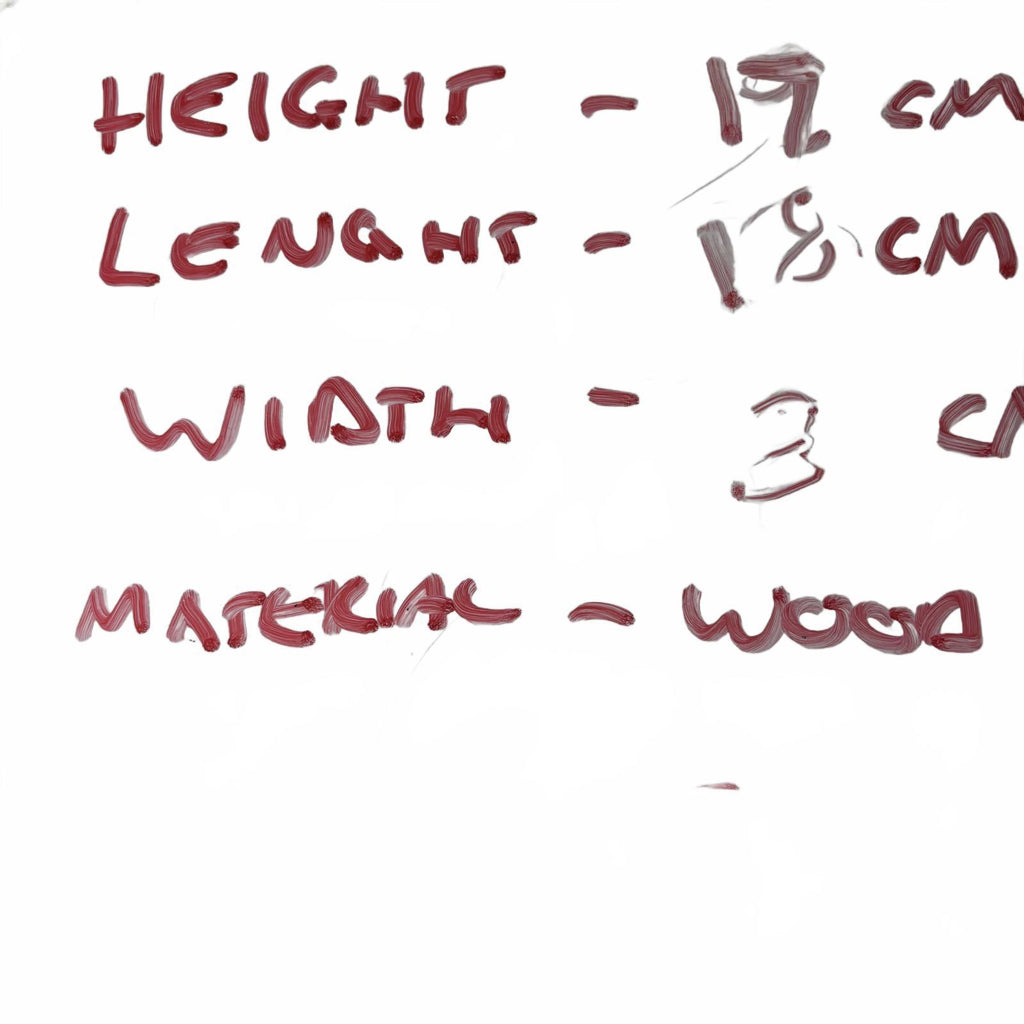 HEIGHT - 19 CM
LENGHT - 18 CM
WIDTH - 3 C
MATERIAL - WOOD